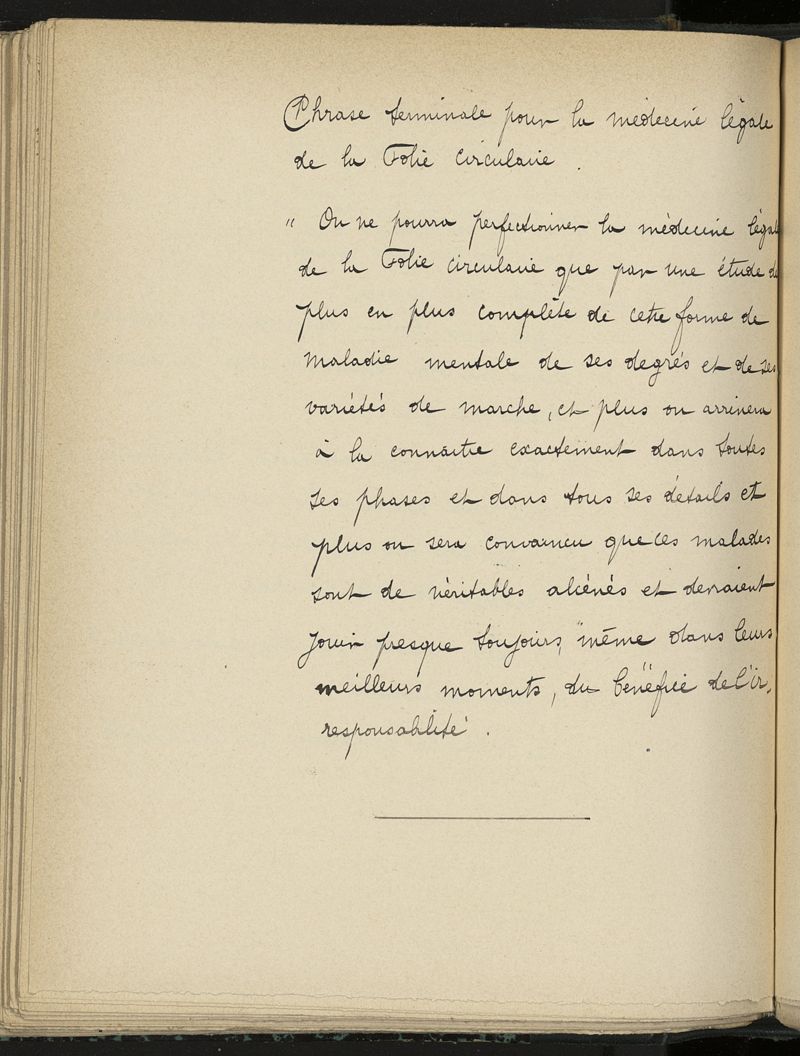 Phrase terminale pour la médecine légale
de la Folie circulaire .
" On ne pourra perfectionner la médecine légale
de la Folie circulaire que par une étude de
plus en plus complète de cette forme de
maladie mentale de ses degrés et de ses
variétés de marche, et plus on arrivera
à la connaître exactement dans toutes
ses phases et dans tous ses détails et
plus on sera convaincu que ces malades
sont de véritables aliénés et devraient
jouir presque toujours, même dans leurs
meilleurs moments, du bénéfice de l'ir,
responsabilité .